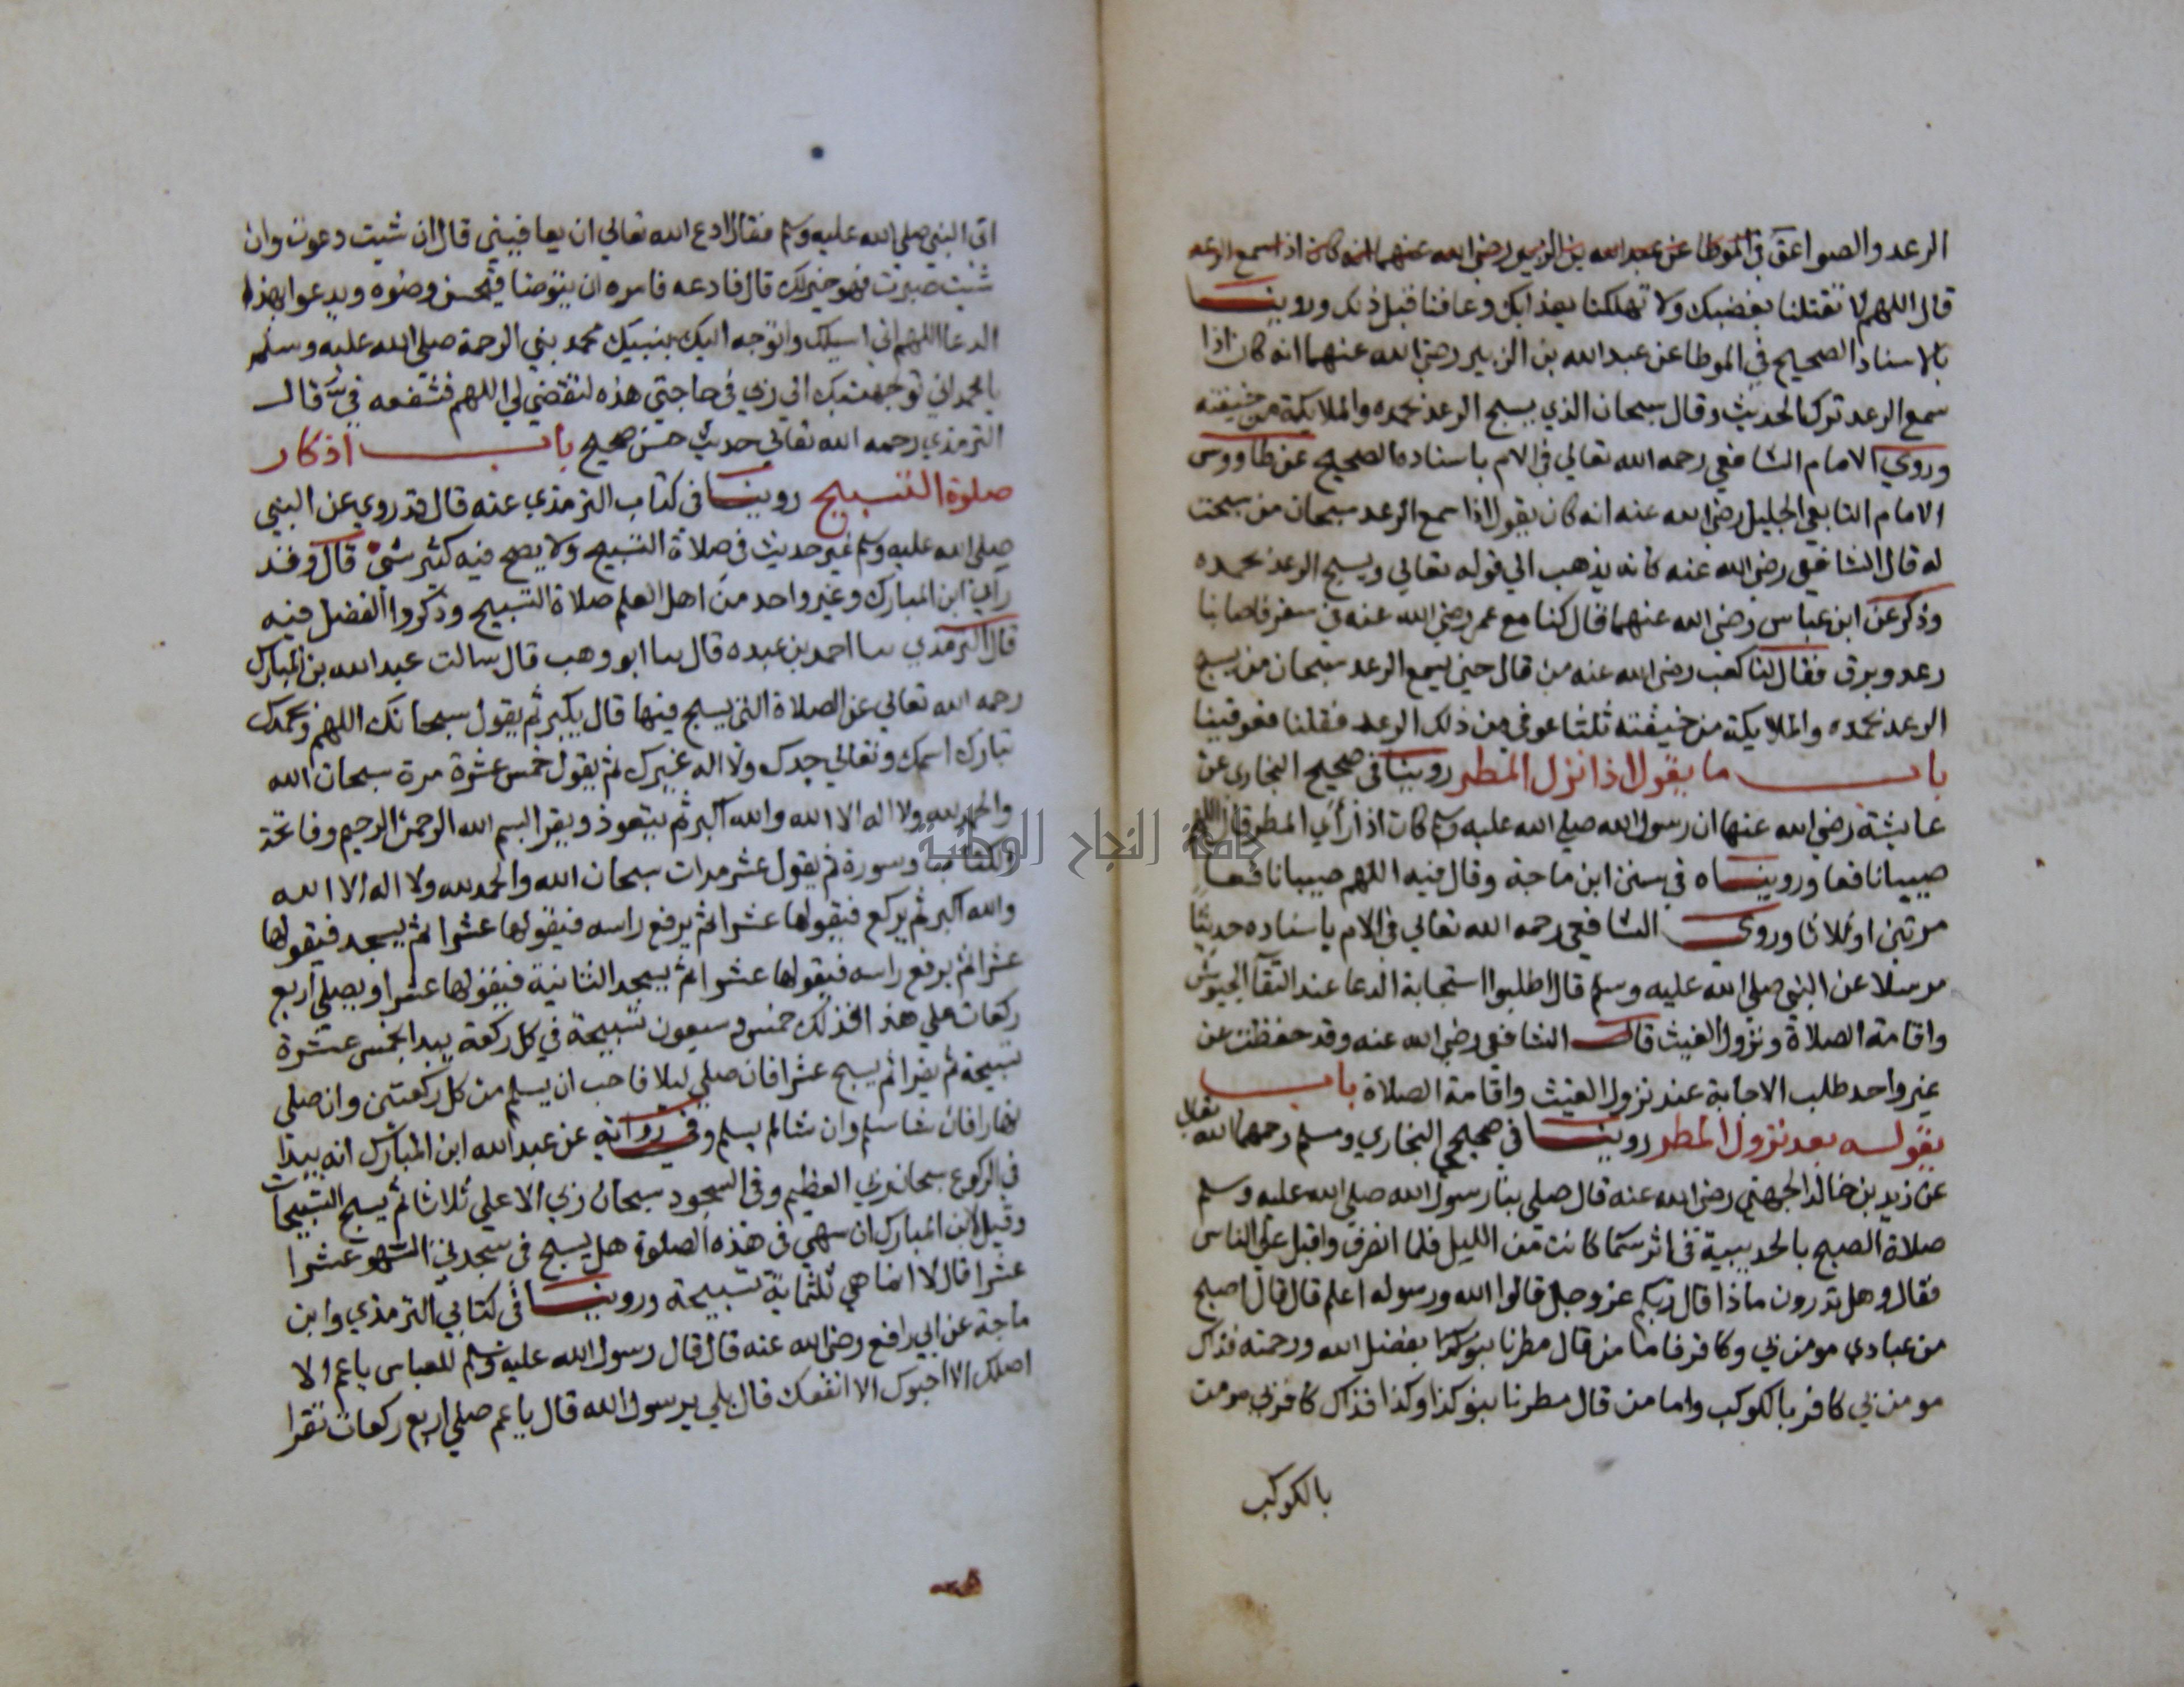 الرعد والصواعق في الموطا عن عبد الله بن الزبير رضي الله عنهما انه كان اذا سمع الرعد
قال اللهم لا تقتلنا بغضبك ولا تهلكنا بعذابك وعافنا قبل ذلك وروينا
بالاسناد الصحيح في الموطا عن عبد الله بن الزبير رضي الله عنهما انه كان اذا
سمع الرعد ترك الحديث وقال سبحان الذي يسبح الرعد بحمده والملايكة من خيفته
وروي الامام الشافعي رحمه الله تعالي في الام باسناده الصحيح عن طاووس
الامام التابعي الجليل رضي الله عنه انه كان يقول اذا سمع الرعد سبحان من سبحت
له قال الشافعي رضي الله عنه كانه يذهب الي قوله تعالي ويسبح الرعد بحمده
وذكر عن ابن عباس رضي الله عنهما قال كنا مع عمر رضي الله عنه في سفر فاصابنا
رعد وبرق فقال لنا كعب رضي الله عنه من قال حين يسمع الرعد سبحان من يسبح
الرعد بحمده والملايكة من خيفته ثلثا عوفي من ذلك الرعد فقلنا فعوفينا
باب ما يقول اذا نزل المطر روينا في صحيح البخاري عن
عايشة رضي الله عنها ان رسول الله صلي الله عليه وسلم كان اذا رأي المطر قال اللهم
صيبا نافعا ورويناه في سنن ابن ماجة وقال فيه اللهم صيبا نافعا
مرتين او ثلاثا وروي الشافعي رحمه الله تعالي في الام باسناده حديثا
مرسلا عن النبي صلي الله عليه وسلم قال اطلبوا استجابة الدعا عند التقآ الجيوش
واقامة الصلاة ونزول الغيث قال الشافعي رضي الله عنه وقد حفظت عن
غير واحد طلب الاجابة عند نزول الغيث واقامة الصلاة باب
يقوله بعد نزول المطر روينا في صحيحي البخاري ومسلم رحمهما الله تعالي
عن زيد بن خالد الجهني رضي الله عنه قال صلي بنا رسول الله صلي الله عليه وسلم
صلاة الصبح بالحديبية في اثر سما كانت من الليل فلما انصرف واقبل علي الناس
فقال وهل تدرون ماذا قال ربكم عز وجل قالوا الله ورسوله اعلم قال قال اصبح
من عبادي مومن بي وكافر فاما من قال مطرنا بفضل الله ورحمته فذاك
مومن بي كافر بالكوكب واما من قال مطرنا بنو كذا وكذا فذاك كافر بي مومن
بالكوكب
اتي النبي صلي الله عليه وسلم فقال ادع الله تعالي ان يعافيني قال ان شيت دعوت وان
شيت صبرت فهو خير لك قال فادعه فامره ان يتوضا فيحسن وضوه ويدعوا بهذا
الدعا اللهم اني اسيلك واتوجه اليك بنبيك محمد نبي الرحمة صلي الله عليه وسلم
يا محمد اني توجهت بك الي ربي في حاجتي هذه لتقضي لي اللهم فشفعه في قال
الترمذي رحمه الله تعالي حديث حسن صحيح باب اذكار
صلوة التسبيح روينا في كتاب الترمذي عنه قال قد روي عن النبي
صلي الله عليه وسلم غير حديث في صلاة التسبيح ولا يصح فيه كثير شي قال وقد
راي ابن المبارك وغير واحد من اهل العلم صلاة التسبيح وذكروا الفضل فيه
قال الترمذي سا احمد بن عبده قال سا ابو وهب قال سالت عبد الله بن المبارك
رحمه الله تعالي عن الصلاة التي يسبح فيها قال يكبر ثم يقول سبحانك اللهم وبحمدك
تبارك اسمك وتعالي جدك ولا اله غيرك ثم يقول خمس عشرة مرة سبحان الله
والحمد لله ولا اله الا الله والله اكبر ثم يتعوذ ويقرا بسم الله الرحمن الرحيم وفاتحة
الكتاب وسورة ثم يقول عشر مرات سبحان الله والحمد لله ولا اله الا الله
والله اكبر ثم يركع فيقولها عشرا ثم يرفع راسه فيقولها عشرا ثم يسجد فيقولها
عشرا ثم يرفع راسه فيقولها عشرا ثم يسجد الثانية فيقولها عشرا ويصلي اربع
ركعات علي هذا فذلك خمس وسبعون تسبيحة في كل ركعة يبدا بخمس عشرة
تسبيحة ثم يقرا ثم يسبح عشرا فان صلي ليلا فاحب ان يسلم من كل ركعتين وان صلي
نهارا فان شا سلم وان شا لم يسلم وفي رواية عن عبد الله ابن المبارك انه يبدا
في الركوع سبحان ربي العظيم وفي السجود سبحان ربي الاعلي ثلاثا ثم يسبح التسبيحات
وقيل لابن المبارك ان سهي في هذه الصلوة هل يسبح في سجدتي السهو عشرا
عشرا قال لا انما هي ثلثماية تسبيحة وروينا في كتابي الترمذي وابن
ماجة عن ابي رافع رضي الله عنه قال قال رسول الله عليه وسلم للعباس يا عم الا
اصلك الا احبوك الا انفعك قال بلي يرسول الله قال يا عم صلي اربع ركعات تقرا
جامعة النجاح الوطنية